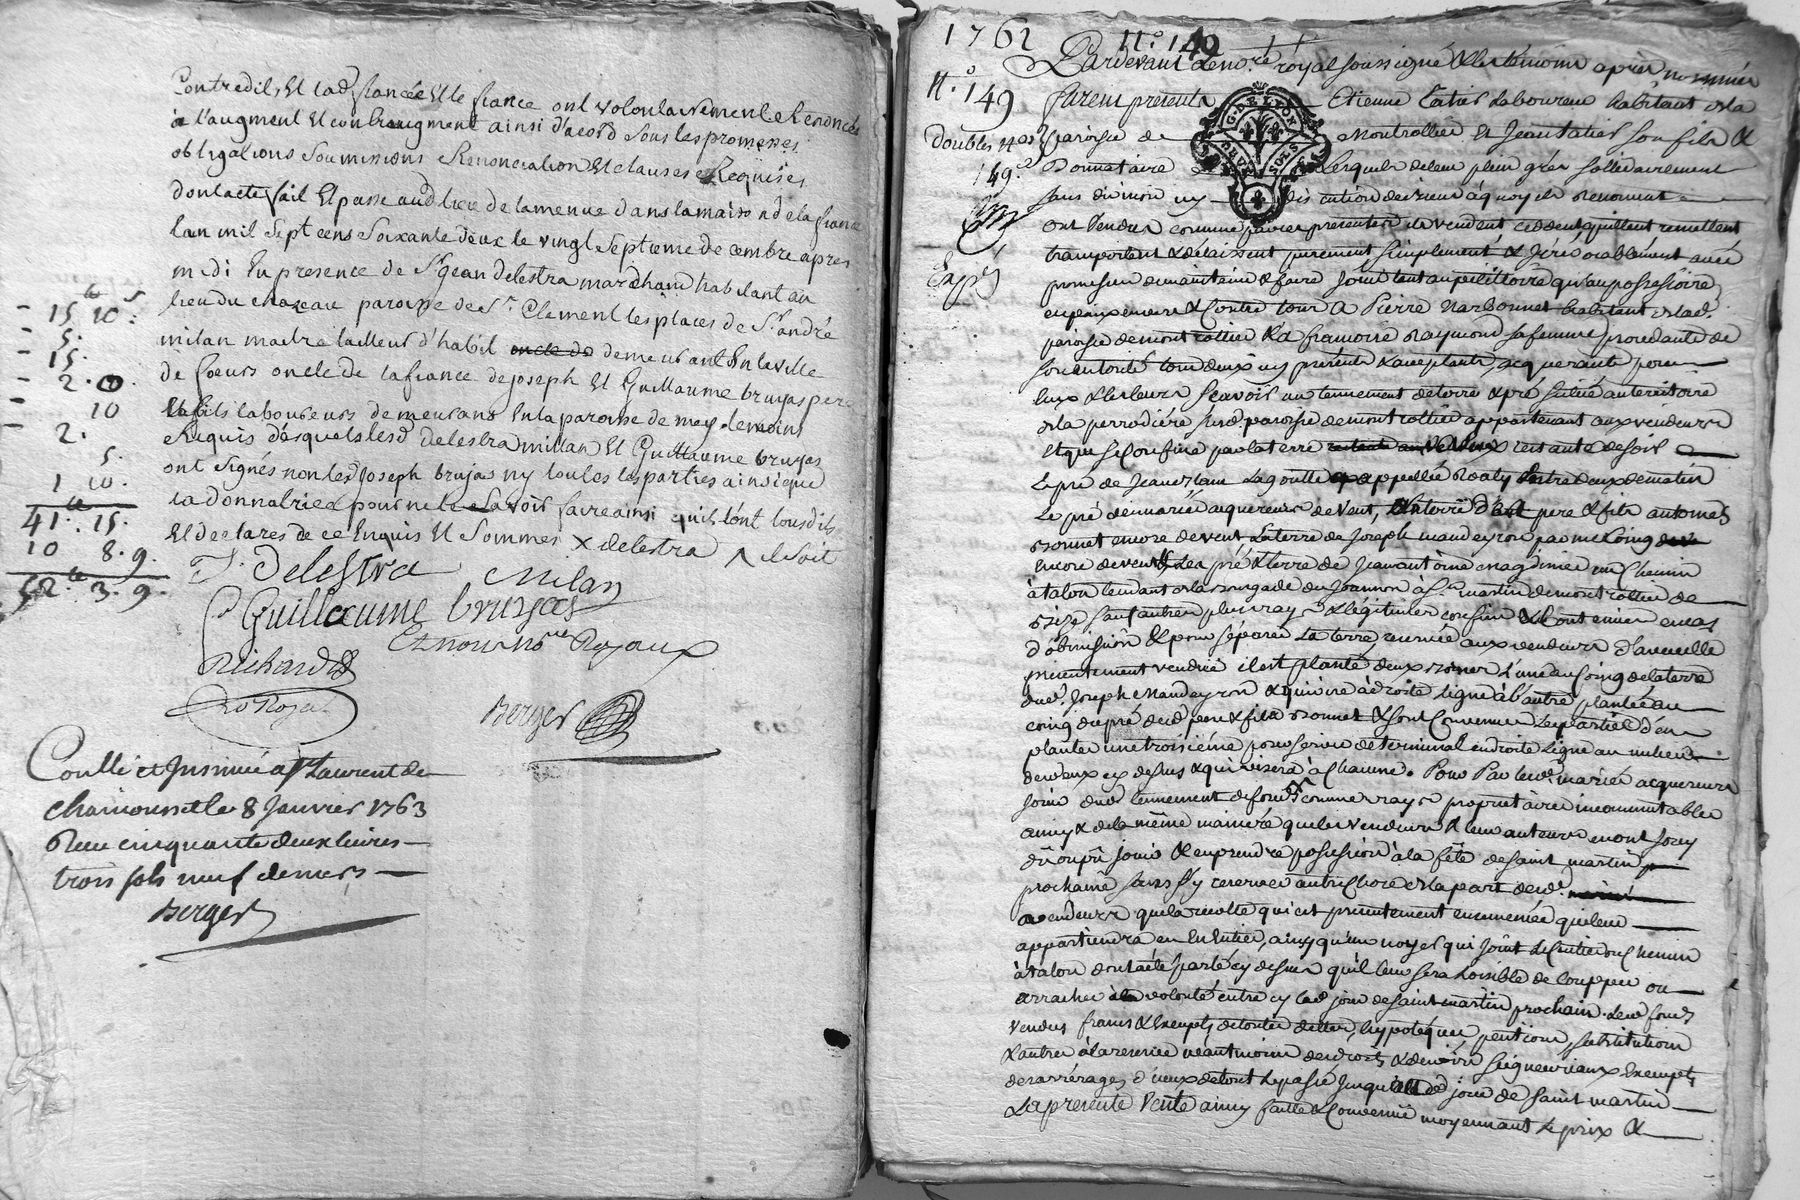 Contredit, Et lad. fiancée Et le fiance ont volontairement Renoncés
a l'augment Et contraugment ainsi d'acord sous les promesses
obligations soumissions Renonciation Et clauses Requises
dont acte fait Et passe aud. lieu de la menue dans la maison de la fiance
Lan mil sept cens soixante deux le vingt septieme decembre apres
midi En presence de Sr. Jean delestra marchand habitant au
lieu du chazeau paroisse de St. Clement les places de Sr. andré
milan maitre tailleur d'habit oncle de demeurant En la ville
de foeurs oncle de la fiance de joseph Et Guillaume bruyas pere
Et fils laboureurs demeurans En la paroisse de meys temoins
Requis desquels lesd. delestra millan Et Guillaume bruyas
ont signés non led. Joseph brujas ny toutes les parties ainsi que
la donnatrice pour ne le savoir faire ainsi quils l'ont tous dits
Et declares de ce Enquis Et sommes x delestra
J. Delestra Milan
Guillaume bruyas
Et nous nore. Royaux
Richard
no Royal
Berger
15 10
5
15
2 0
10
2
5
1 10
41 15
10 8 9
52 3 9
Conllé et Insinué a St. Laurent de
chamousset le 8 Janvier 1763
Recu cinquante deux livres
trois sols neuf deniers
Berger
1762 N.o 149
N.o 149
Doubles nos.
149.
Exp.
Pardevant le nore. royal soussigné & les témoins après nommés
furent présents Etienne Tatier Laboureur habitant en la
paroisse de Montrottier Et Jean Tatier son fils &
Donnataire Lesquels de leur plein gré sollidairement
sans division ny discution de biens à quoy ils renoncent
ont Vendus comme par ces présentes ils vendent cèdent quittent remettent
transportent & délaissent purement, simplement & Irrévocablement avec
promesse de maintenir & faire jouir tant au pétitoire qu'au possessoire
envers & contre tous A Pierre Nardonnet habitant en lad.
paroisse de montrottier Et a françoise Raymond sa femme procedante de
son autorité tous deux icy présents & acceptants, acquereurs pour
Eux & les leurs scavoir un tennement de terre & pré situé au territoire
de la perrodière susd. paroisse de montrottier appartenant aux vendeurs
Et qui se confine par la terre restante de soir
Le pré de Jean
Le pré des mariés acquereurs de vent, pere & fils
encore de vent La terre de Joseph mandeyron par
encore de vent & Les pré & terre de Jean antoine un Chemin
à talon tendant à St. martin de montrottier de
bize sauf autres plus vrays & légitimes confins
d'obmission & pour séparer La terre, reservée aux vendeurs d'avec celle
présentement vendue il est planté deux bornes L'une au coing de la terre
dud. Joseph Mandeyron & qui vire à droite ligne à L'autre plantée au
coing du pré desd. pere & fils & sont Convenues Les parties d'en
planter une troisième pour servir de terminal en droite Ligne au milieu
des deux cy dessus & qui visera à Chacune. Pour Par lesd. mariés acquereurs
jouir dud. tennement de fonds comme vrays proprietaires incommutables
ainsy & de la même manière que les vendeurs & leurs auteurs en ont jouy
dû ou pû jouir & en prendre possession à la fête de saint martin
prochaine sans s'y reserver autre Chose de la part desd.
vendeurs que la recolte qui est presentement ensemencée qui leur
appartiendra en En Entier, ainsy qu'un noyer qui joint le sentier ou chemin
à talon dont a été parlé cy dessus qu'il leur sera loisible de coupper ou
arracher à la volonté entre cy lad. jour de saint martin prochain. Lesd. fonds
Vendus francs & Exempts de toutes dettes, hypoteques, pentions, substitution
& autres à la reserve néantmoins des droits & devoirs seigneuriaux Exempts
des arrérages d'iceux de tout Le passé jusqu'aud. jour de saint martin
La presente Vente ainsy faitte & Convenue moyennant Le prix &
GN. DE LYON
DEUX SOLS